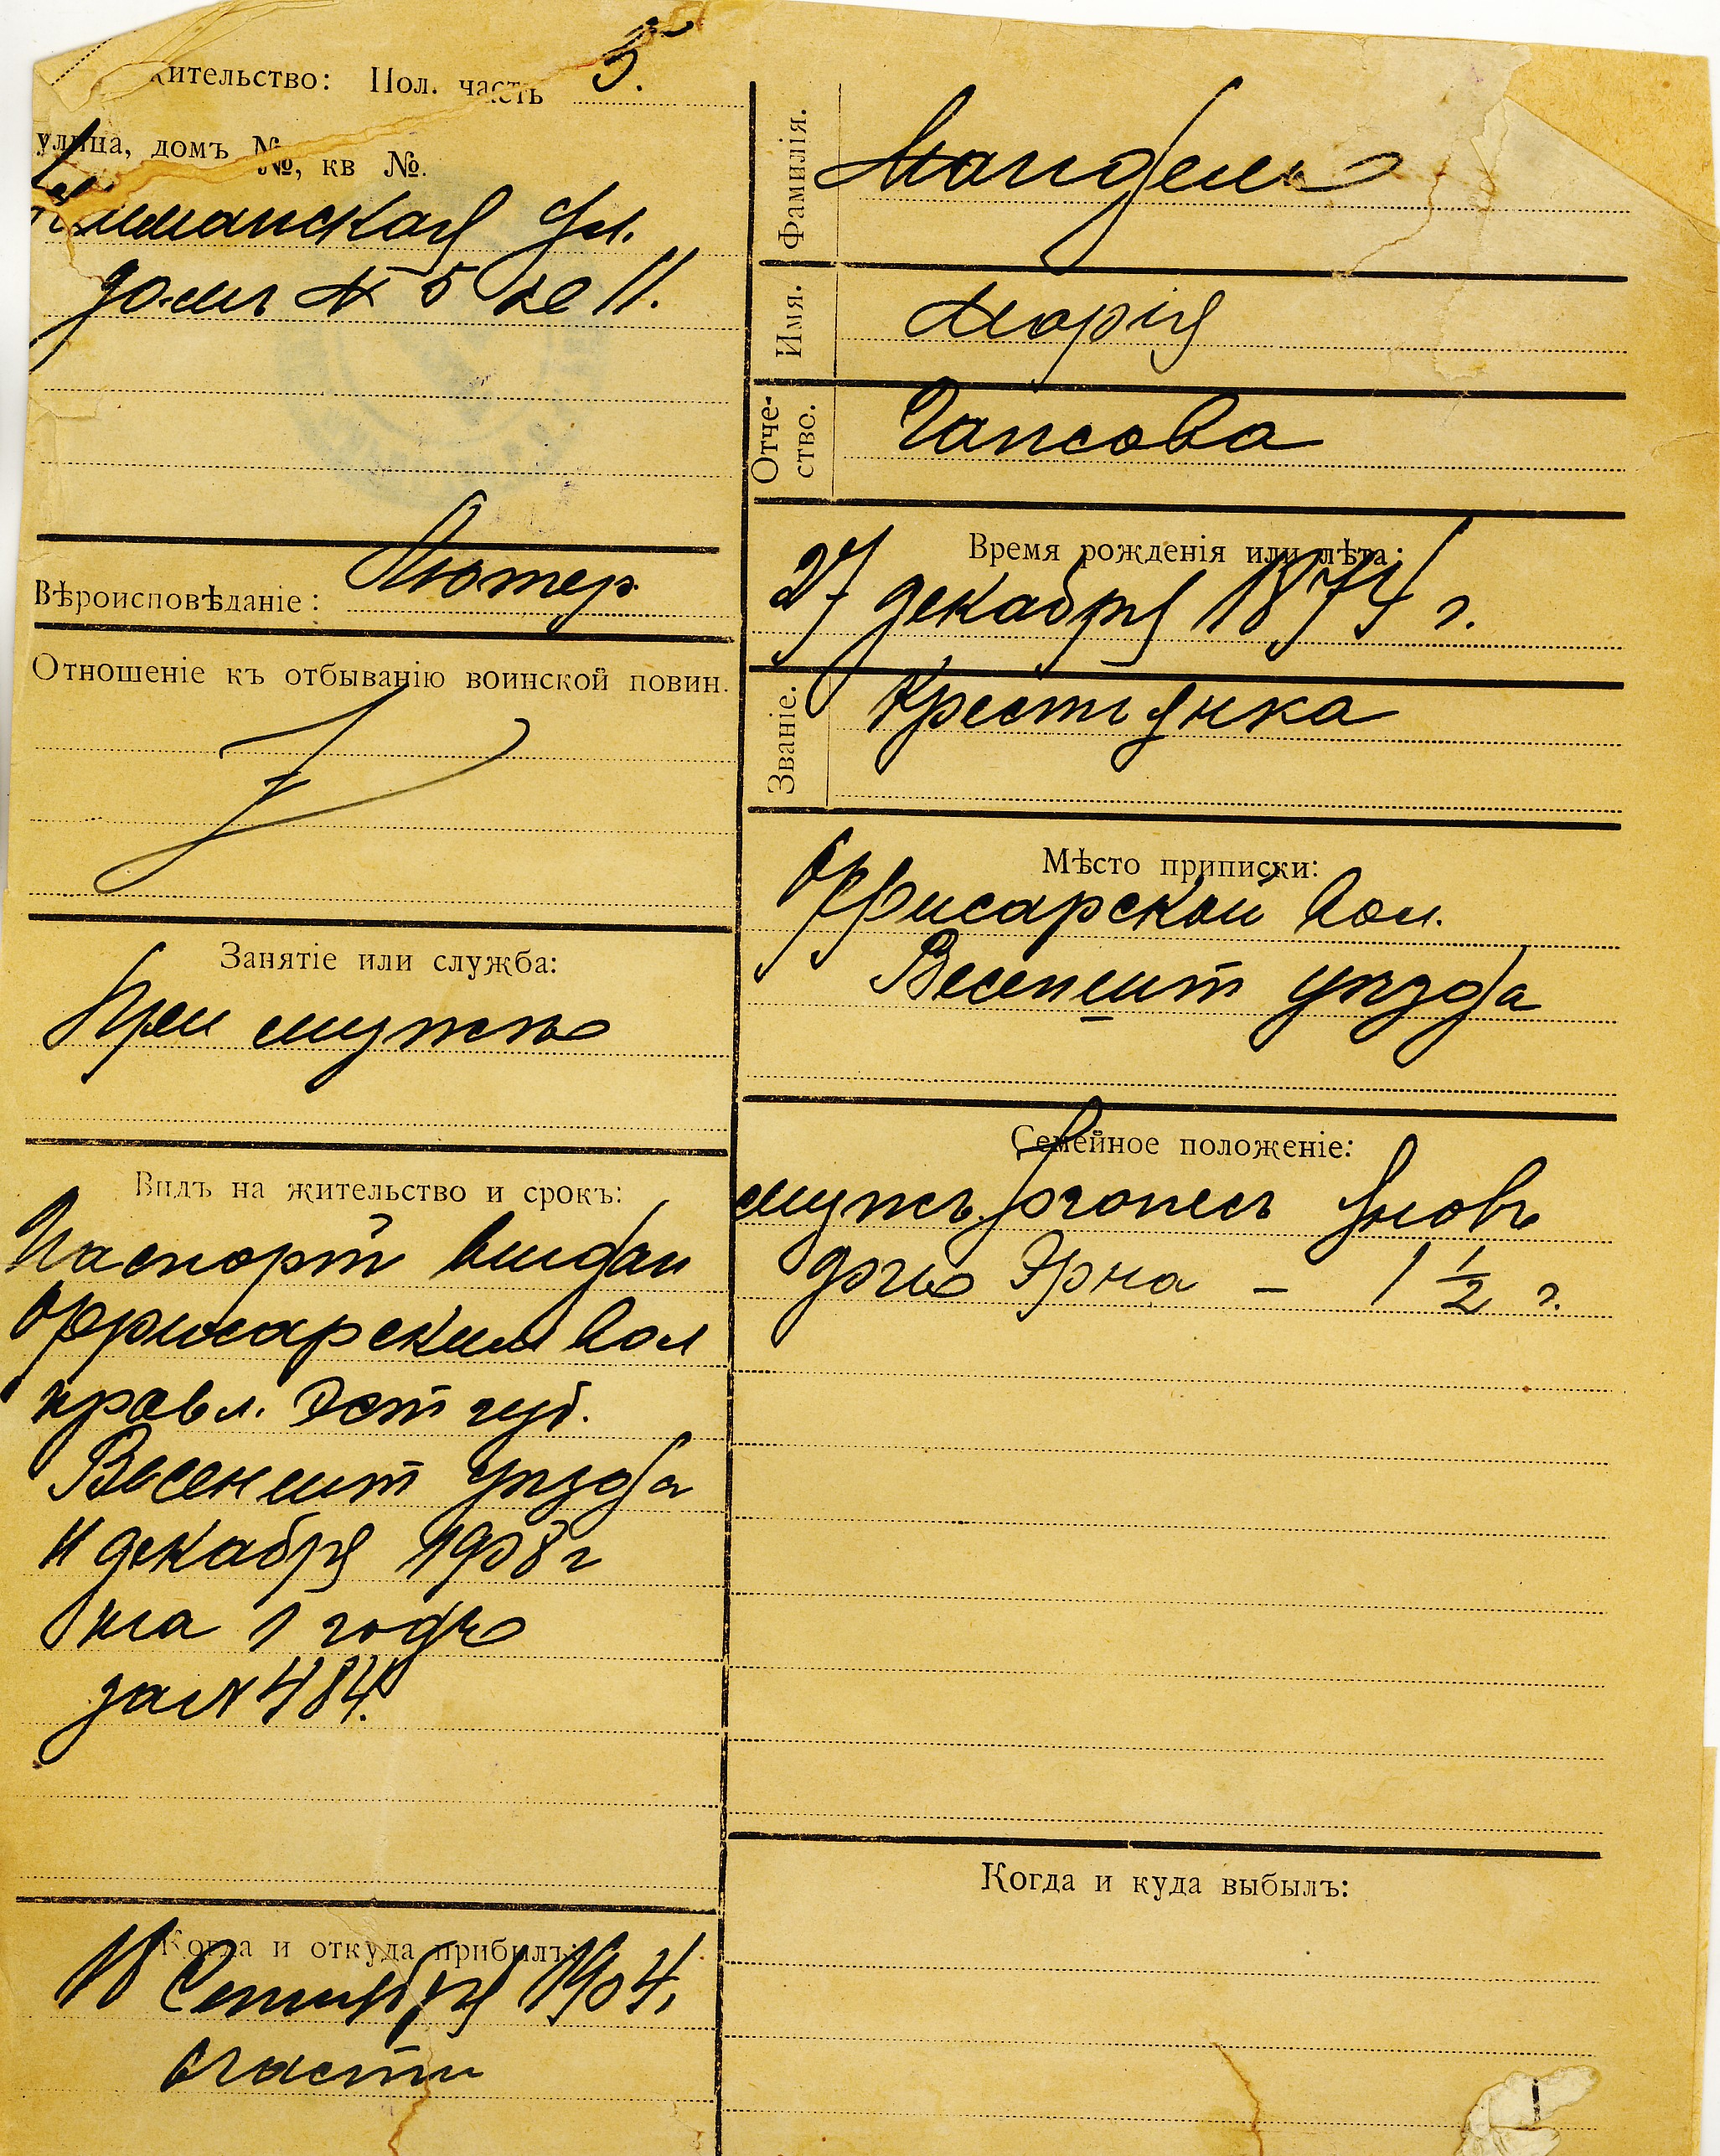 жительство: Пол. часть 5.
улица, домъ №, кв №.
ул.
домъ № 5 кв 11.
Вѣроисповѣданіе: Лютер.
Отношеніе къ отбыванію воинской повин.
Занятіе или служба:
При мужѣ
Видъ на жительство и срокъ:
Паспорт выдан
Оррисарским вол
правл. Эст губ.
Везеншт уѣзда
11 декабря 1903 г
на 1 годъ
за № 484.
Когда и откуда прибылъ:
18 Сентября 1904,
части
Фамилія. Мандель
Имя. Марія
Отчество. Гансова
Время рожденія или лѣта:
27 декабря 1874 г.
Званіе. Крестьянка
Мѣсто приписки:
Оррисарской вол.
Везеншт уѣзда
Семейное положеніе:
мужъ Яганесъ вновь
дочь Эрна – 1 1/2 г.
Когда и куда выбылъ: